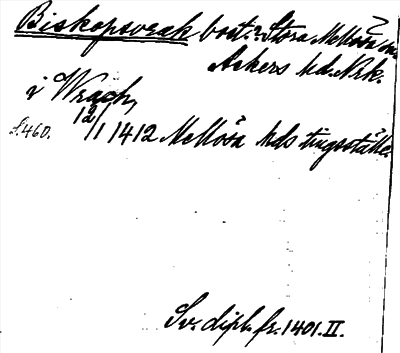 Biskopsvrak bost. i Stora Mellösa sn
Askers hd. Nrk.
i Wragh,
s.460. 12/1 1412 Mellösa hds tingsställe.
Sv. dipl. fr. 1401. II.